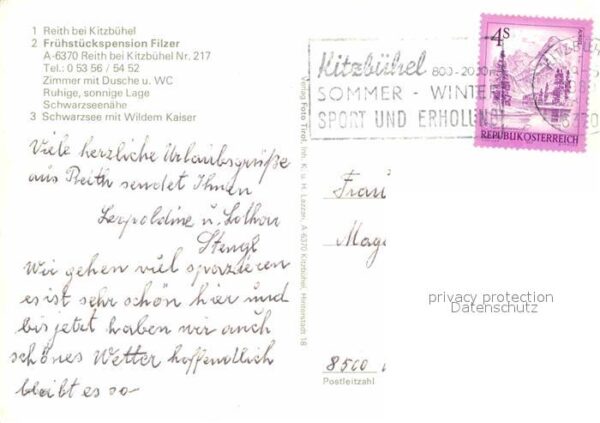 1 Reith bei Kitzbühel
2 Frühstückspension Filzer
A-6370 Reith bei Kitzbühel Nr. 217
Tel.: 0 53 56 / 54 52
Zimmer mit Dusche u. WC
Ruhige, sonnige Lage
Schwarzseenähe
3 Schwarzsee mit Wildem Kaiser
Viele herzliche Urlaubsgrüße
aus Reith sendet Ihnen
Leopoldine u. Lothar
Stengl
Wir gehen viel spazieren
es ist sehr schön hier und
bis jetzt haben wir auch
schönes Wetter hoffentlich
bleibt es so
Verlag Foto Tirol, Inh. K. u. H. Lazzeri, A 6370 Kitzbühel, Hinterstadt 18
Kitzbühel 800-2000m
SOMMER - WINTER
SPORT UND ERHOLUNG
4 S
REPUBLIK ÖSTERREICH
KITZBÜHEL
6370
Frau
Mag
8500
Postleitzahl
privacy protection
Datenschutz